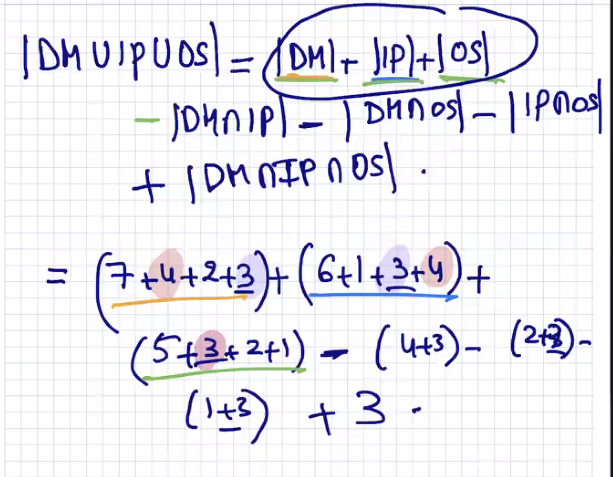 |DM∪IP∪OS| = |DM|+ |IP|+|OS|
- |DM∩IP| - |DM∩OS| - |IP∩OS|
+ |DM∩IP∩OS| .
= (7+4+2+3)+(6+1+3+4)+
(5+3+2+1) - (4+3) - (2+3) -
(1+3) + 3 .